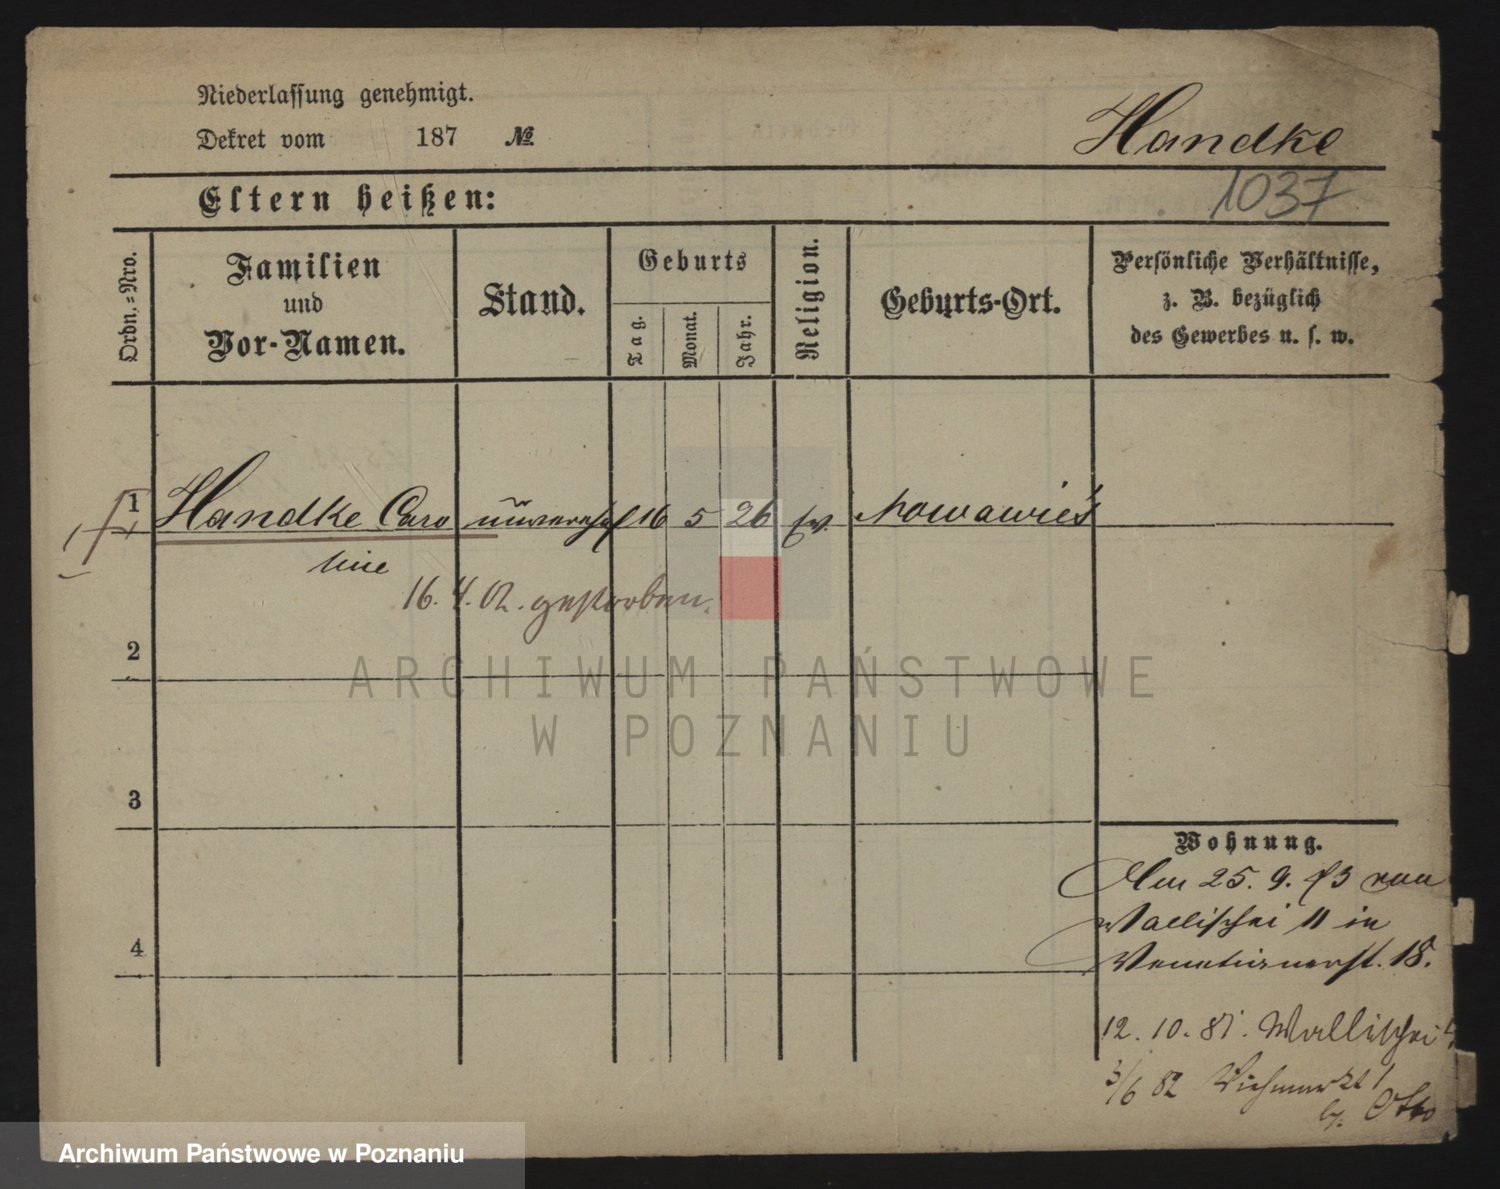 Niederlassung genehmigt.
Dekret vom 187 №
Handke
1037
Eltern heißen:
Ordn.-Nro.
Familien
und
Vor-Namen.
Stand.
Geburts
Tag.
Monat.
Jahr.
Religion.
Geburts-Ort.
Persönliche Verhältnisse,
z. B. bezüglich
des Gewerbes u. s. w.
1 Handke Caro unverehel 16 5 26 ev. Nowawieś
line
16. 4. 02. gestorben.
2
ARCHIWUM PAŃSTWOWE
W POZNANIU
3
Wohnung.
Am 25. 9. 73 von
Wallischei 11 in
4
Venetianerst. 18.
12. 10. 81. Wallischei
3/6 82 Viehmarkt 1
b. Otto
Archiwum Państwowe w Poznaniu